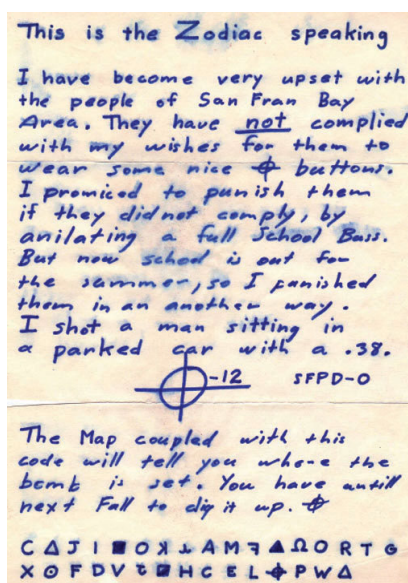 This is the Zodiac speaking
I have become very upset with
the people of San Fran Bay
Area. They have not complied
with my wishes for them to
wear some nice ⌖ buttons.
I promiced to punish them
if they did not comply, by
anilating a full School Buss.
But now school is out for
the summer, so I punished
them in an another way.
I shot a man sitting in
a parked car with a .38.
⌖-12 SFPD-0
The Map coupled with this
code will tell you where the
bomb is set. You have untill
next Fall to dig it up. ⌖
C Δ J I ■ O ʞ ⅄ A M ꟻ ▲ Ω O R T G
X ⊙ F D V ■ H C E L ⌖ P W Δ